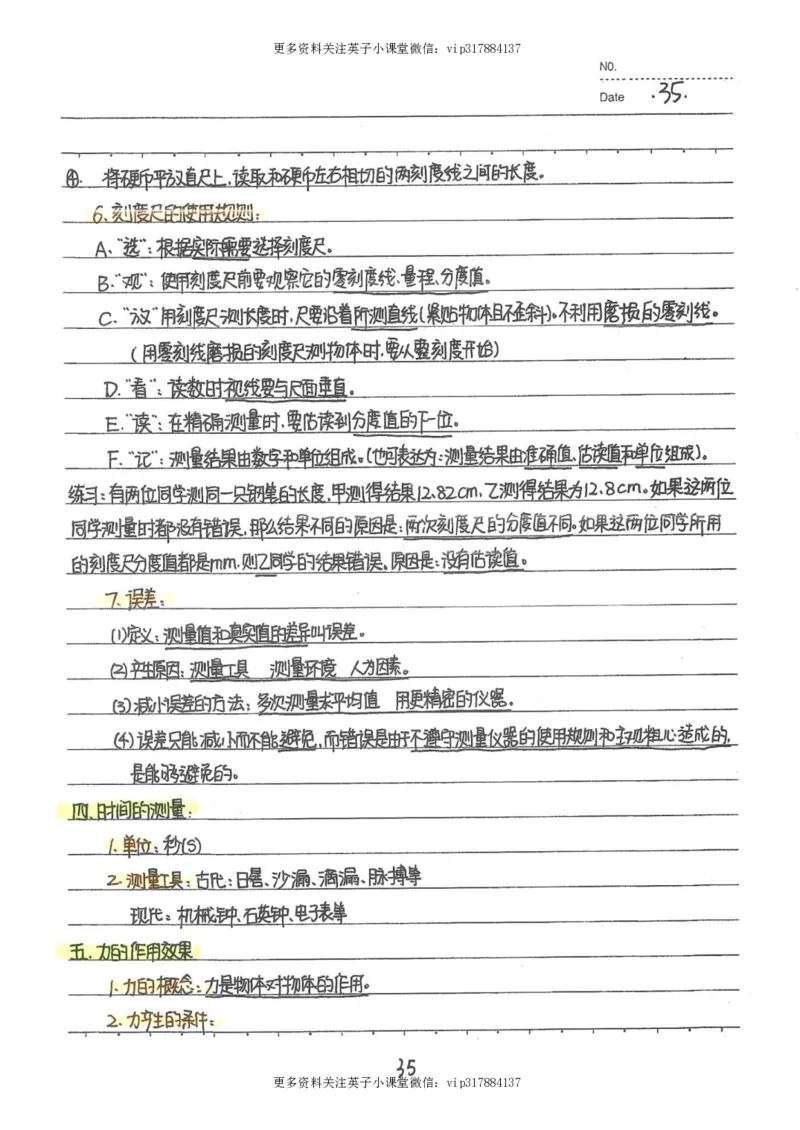 更多资料关注英子小课堂微信：vip317884137
NO.
Date ·35·
④. 将硬币平放直尺上，读取和硬币左右相切的两刻度线之间的长度。
6、刻度尺的使用规则：
A、“选”：根据实际需要选择刻度尺。
B、“观”：使用刻度尺前要观察它的零刻度线、量程、分度值。
C、“放”用刻度尺测长度时，尺要沿着所测直线（紧贴物体且不歪斜）。不利用磨损的零刻线。
（用零刻线磨损的刻度尺测物体时，要从整刻度开始）
D、“看”：读数时视线要与尺面垂直。
E、“读”：在精确测量时，要估读到分度值的下一位。
F、“记”：测量结果由数字和单位组成。（也可表达为：测量结果由准确值、估读值和单位组成）。
练习：有两位同学测同一只钢笔的长度，甲测得结果12.82cm，乙测得结果为12.8cm。如果这两位
同学测量时都没有错误，那么结果不同的原因是：两次刻度尺的分度值不同。如果这两位同学所用
的刻度尺分度值都是mm，则乙同学的结果错误。原因是：没有估读值。
7、误差：
(1)定义：测量值和真实值的差异叫误差。
(2)产生原因：测量工具 测量环境 人为因素。
(3)减小误差的方法：多次测量求平均值 用更精密的仪器。
(4)误差只能减小而不能避免，而错误是由于不遵守测量仪器的使用规则和主观粗心造成的，
是能够避免的。
四、时间的测量：
1、单位：秒(S)
2、测量工具：古代：日晷、沙漏、滴漏、脉搏等
现代：机械钟、石英钟、电子表等
五、力的作用效果
1、力的概念：力是物体对物体的作用。
2、力产生的条件：
35
更多资料关注英子小课堂微信：vip317884137